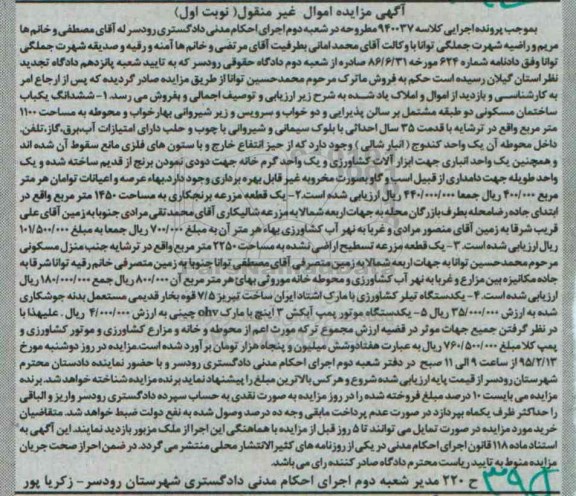 آگهی مزایده اموال غیر منقول( نوبت اول)
بموجب پرونده اجرایی کلاسه ۹۴۰۰۳۷ مطروحه در شعبه دوم اجرای احکام مدنی دادگستری رودسر له آقای مصطفی و خانم ها
مریم و راضیه شهرت جملگی توانا با وکالت آقای محمد امانی بطرفیت آقای مرتضی و خانم ها آمنه و رقیه و صدیقه شهرت جملگی
توانا وفق دادنامه شماره ۶۲۴ مورخه ۸۶/۶/۳۱ صادره از شعبه دوم دادگاه حقوقی رودسر که به تایید شعبه پانزدهم دادگاه تجدید
نظر استان گیلان رسیده است حکم به فروش ماترک مرحوم محمدحسین توانا از طریق مزایده صادر گردیده که پس از ارجاع امر
به کارشناسی و بازدید از اموال و املاک یاد شده به شرح زیر ارزیابی و توصیف اجمالی و بفروش می رسد. ۱- ششدانگ یکباب
ساختمان مسکونی دو طبقه مشتمل بر سالن پذیرایی و دو خواب و سرویس و زیر شیروانی بهارخواب و محوطه به مساحت ۱۱۰۰
متر مربع واقع در ترشایه با قدمت ۳۵ سال احداثی با بلوک سیمانی و شیروانی با چوب و حلب دارای امتیازات آب،برق،گاز،تلفن.
داخل محوطه آن یک واحد کندوج (انبار شالی ) وجود دارد که از حیز انتفاع خارج و با ستون های فلزی مانع سقوط آن شده اند
و همچنین یک واحد انباری جهت ابزار آلات کشاورزی و یک واحد گرم خانه جهت دودی نمودن برنج از قدیم ساخته شده و یک
واحد طویله جهت دامداری از قبیل اسب و گاو بصورت مخروبه غیر قابل بهره برداری وجود دارد.بهاء عرصه و اعیانات توامان هر متر
مربع ۴۰۰/۰۰۰ ریال جمعا ۴۴۰/۰۰۰/۰۰۰ ریال ارزیابی شده است.۲- یک قطعه مزرعه برنجکاری به مساحت ۱۴۵۰ متر مربع واقع در
ابتدای جاده رضامحله بطرف بازرگان محله به جهات اربعه شمالا به مزرعه شالیکاری آقای محمدتقی مرادی جنوبا به زمین آقای علی
قریب شرقا به زمین آقای منصور مرادی و غربا به نهر آب کشاورزی بهاء هر متر آن به مبلغ ۷۰۰/۰۰۰ ریال جمعا به مبلغ ۱۰۱/۵۰۰/۰۰۰
ریال ارزیابی شده است. ۳- یک قطعه مزرعه تسطیح اراضی نشده به مساحت ۲۲۵۰ متر مربع واقع در ترشایه جنب منزل مسکونی
مرحوم محمدحسین توانا به جهات اربعه شمالا به زمین متصرفی آقای مصطفی توانا جنوبا به زمین متصرفی خانم رقیه توانا شرقا به
جاده مکانیزه بین مزارع و غربا به نهر آب کشاورزی و محوطه خانه موروثی بهای هر متر مربع آن ۸۰۰/۰۰۰ ریال جمع ۱۸۰/۰۰۰/۰۰۰ ریال
ارزیابی شده است. ۴- یکدستگاه تیلر کشاورزی با مارک اشتاد ایران ساخت تبریز ۷/۵ قوه بخار قدیمی مستعمل بدنه جوشکاری
شده به ارزش ۳۵/۰۰۰/۰۰۰ ریال ۵- یکدستگاه موتور پمپ آبکش ۳ اینچ با مارک ohv چینی به ارزش ۴/۰۰۰/۰۰۰ ریال . علیهذا با
در نظر گرفتن جمیع جهات موثر در قضیه ارزش مجموع ترکه مورث اعم از محوطه و خانه و مزارع کشاورزی و موتور کشاورزی و
پمپ کلا مبلغ ۷۶۰/۵۰۰/۰۰۰ ریال به عبارت هفتادوشش میلیون و پنجاه هزار تومان برآورد شده است.مزایده در روز دوشنبه مورخ
۹۵/۲/۱۳ از ساعت ۹ الی ۱۱ صبح در دفتر شعبه دوم اجرای احکام مدنی دادگستری رودسر و با حضور نماینده دادستان محترم
شهرستان رودسر از قیمت پایه ارزیابی شده شروع و هر کس بالاترین مبلغ را پیشنهاد نماید برنده مزایده شناخته خواهد شد.برنده
مزایده می بایست ۱۰ درصد مبلغ فروخته شده را در روز مزایده به صورت نقدی به حساب سپرده دادگستری رودسر واریز و الباقی
را حداکثر ظرف یکماه بپردازد در صورت عدم پرداخت مابقی وجه ده درصد وصول شده به نفع دولت ضبط خواهد شد. متقاضیان
خرید مورد مزایده در صورت تمایل می توانند تا ۵ روز قبل از مزایده با هماهنگی این اجرا از ملک مزبور بازدید نمایند. این آگهی به
استناد ماده ۱۱۸ قانون اجرای احکام مدنی در یکی از روزنامه های کثیر الانتشار محلی منتشر می گردد. در ضمن احراز صحت جریان
مزایده منوط به تایید ریاست محترم دادگاه صادر کننده رای می باشد.
ح ۲۲۰ مدیر شعبه دوم اجرای احکام مدنی دادگستری شهرستان رودسر- زکریا پور